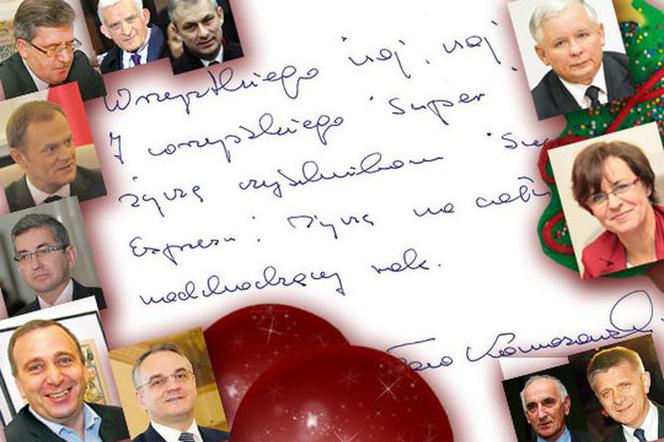 Wszystkiego naj, naj
I wszystkiego super
życzę czytelnikom Su
Expressu! Życzę na cały
nadchodzący rok.